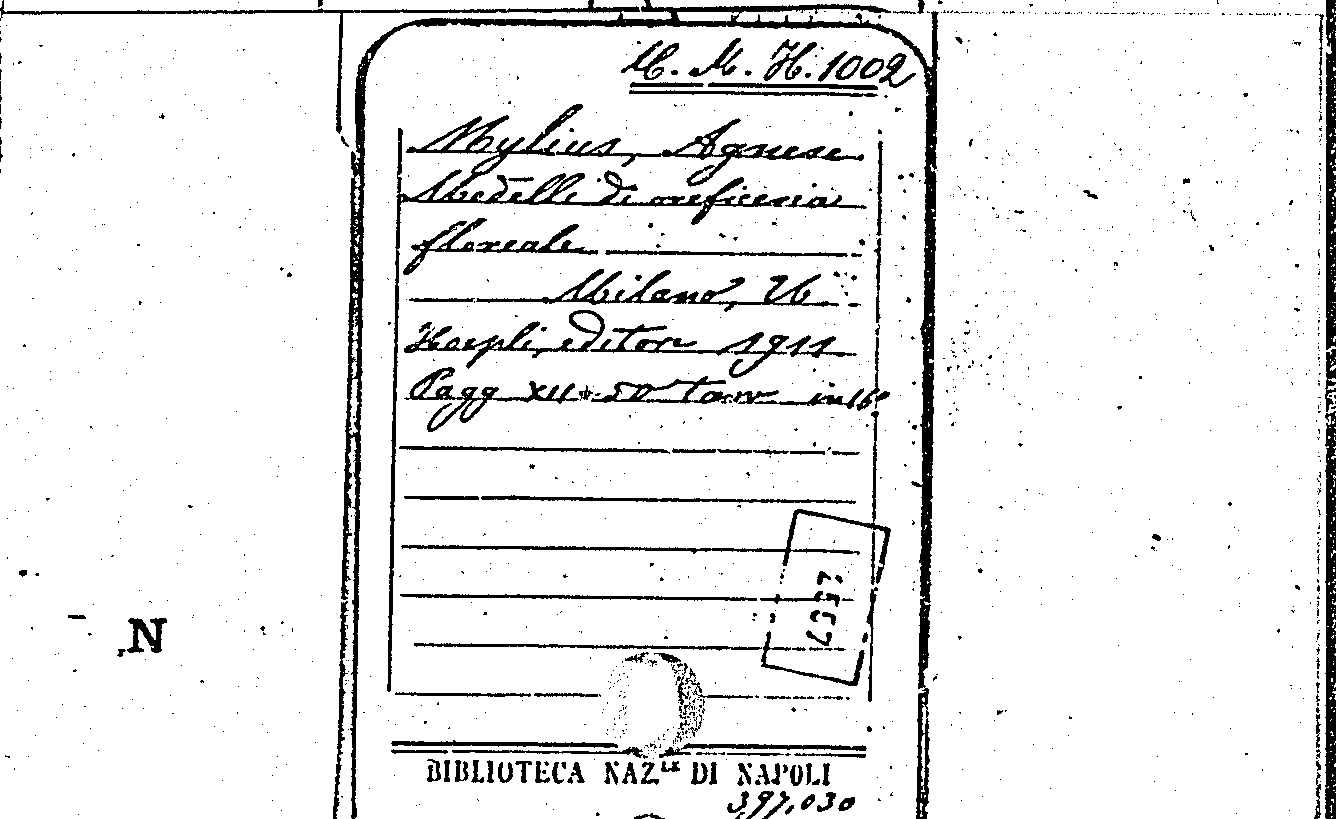 M. M. H. 1002
Mylius, Agnese
Modelli di oreficeria
floreale
Milano, U.
Hoepli, editore 1911
Pagg XII + 50 tavv in 16°
N
BIBLIOTECA NAZ.LE DI NAPOLI
397,030